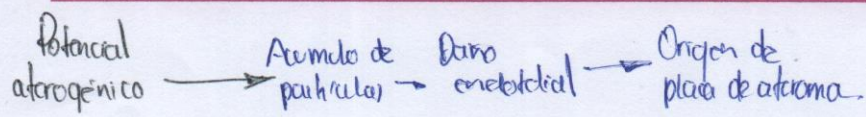 Potencial
aterogénico → Acumulo de
partículas → Daño
endotelial → Origen de
placa de ateroma.